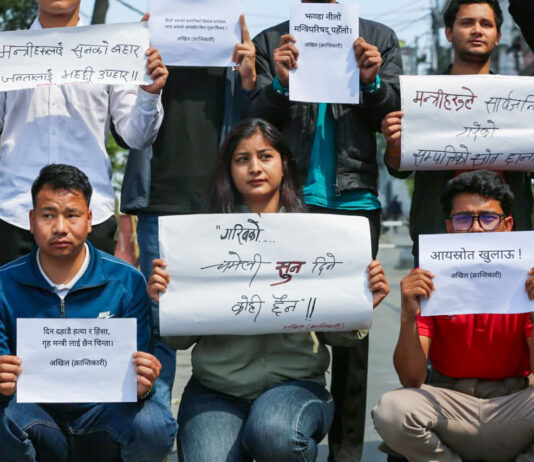 मन्त्रीहरुलाई सुनको बहार
जनतालाई महङ्गी उपहार !!
अखिल (क्रान्तिकारी)
झण्डा नीलो
मन्त्रिपरिषद् पहेँलो।
अखिल (क्रान्तिकारी)
मन्त्रीहरूले सार्वजनि
गरेको
सम्पत्तिको स्रोत
"गरिबको...
चमेली सुन दिने
कोही छैन" !!
अखिल (क्रान्तिकारी)
आयस्रोत खुलाऊ !
अखिल (क्रान्तिकारी)
दिन दहाडै हत्या र हिंसा,
गृह मन्त्री लाई छैन चिन्ता।
अखिल (क्रान्तिकारी)